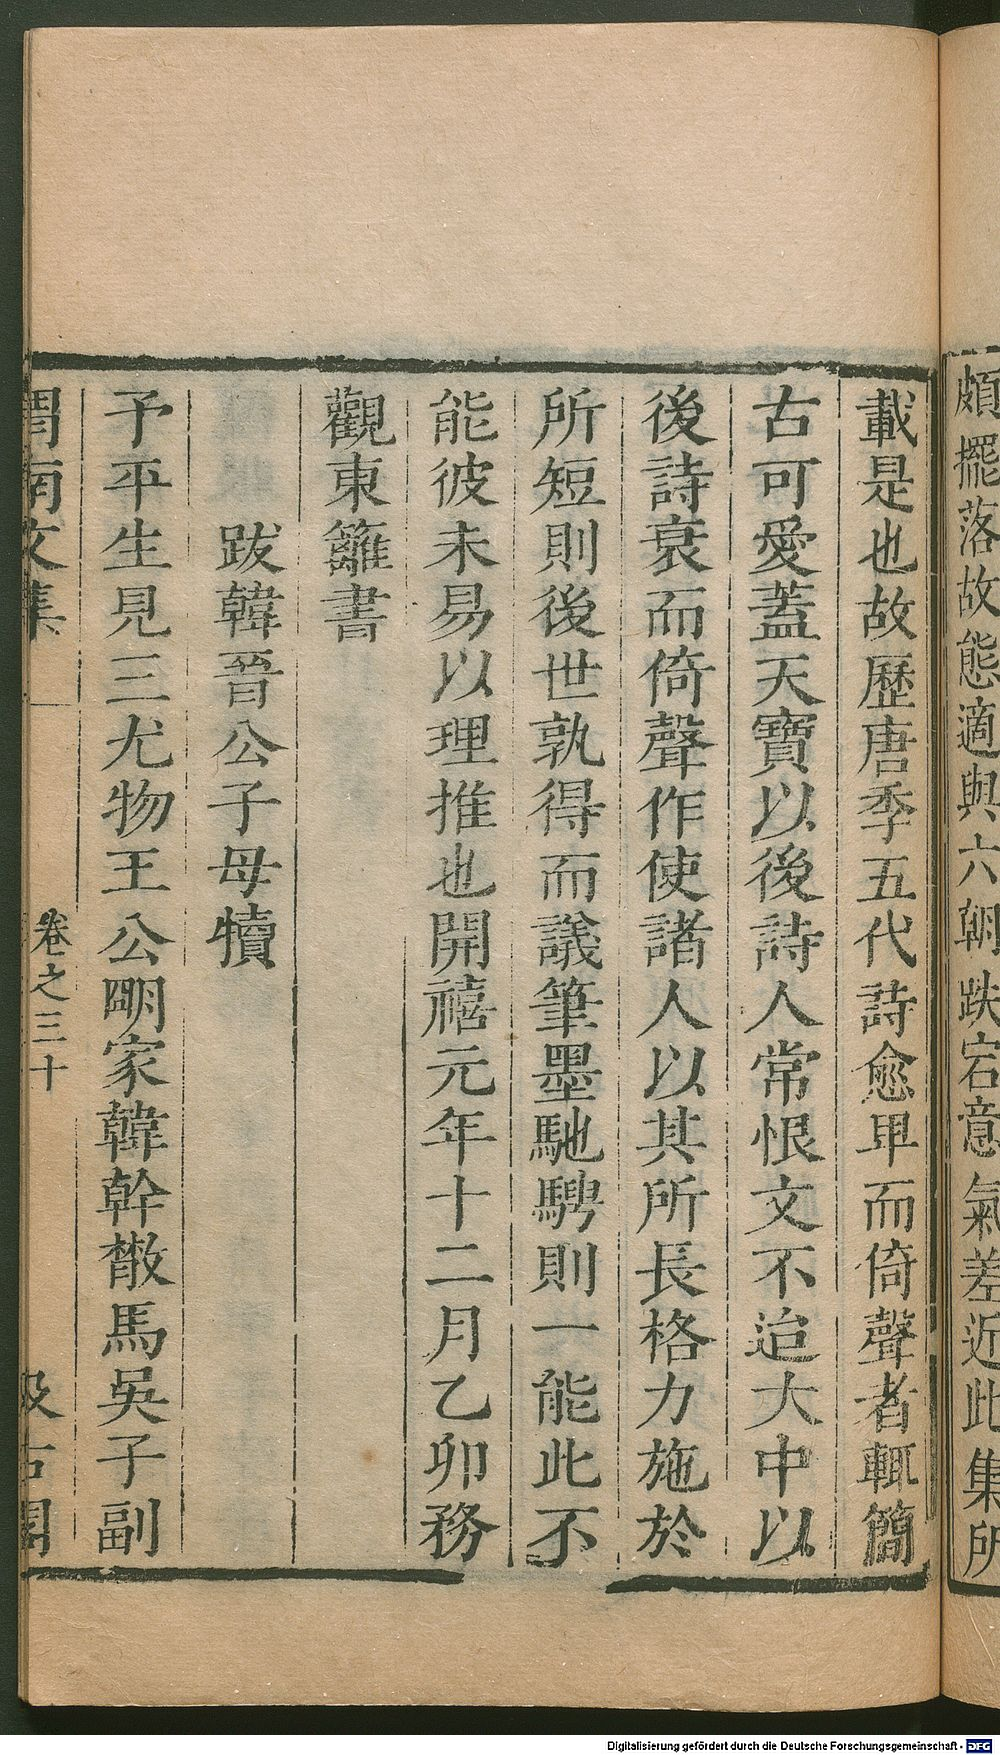 頗擺落故態適與六朝跌宕意氣差近此集所
載是也故歷唐季五代詩愈卑而倚聲者輒簡
古可愛蓋天寶以後詩人常恨文不迨大中以
後詩衰而倚聲作使諸人以其所長格力施於
所短則後世孰得而議筆墨馳騁則一能此不
能彼未易以理推也開禧元年十二月乙卯務
觀東籬書
跋韓晉公子母犢
予平生見三尤物王公明家韓幹散馬吳子副
渭南文集
卷之三十
汲古閣
Digitalisierung gefördert durch die Deutsche Forschungsgemeinschaft - DFG